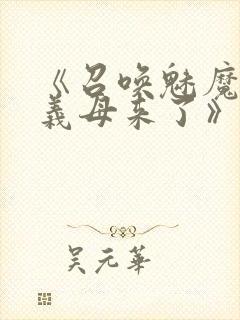 《召唤魅魔
義母来了》
吴元華